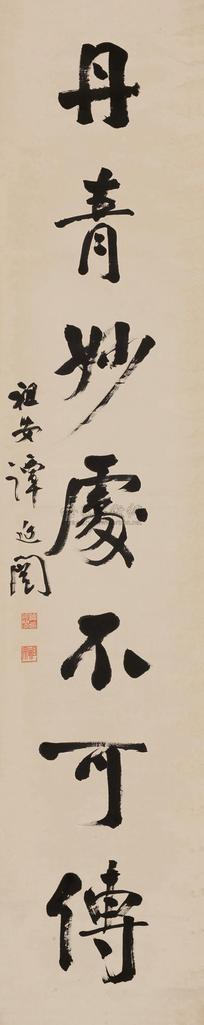 丹青妙處不可傳
祖安譚延闓